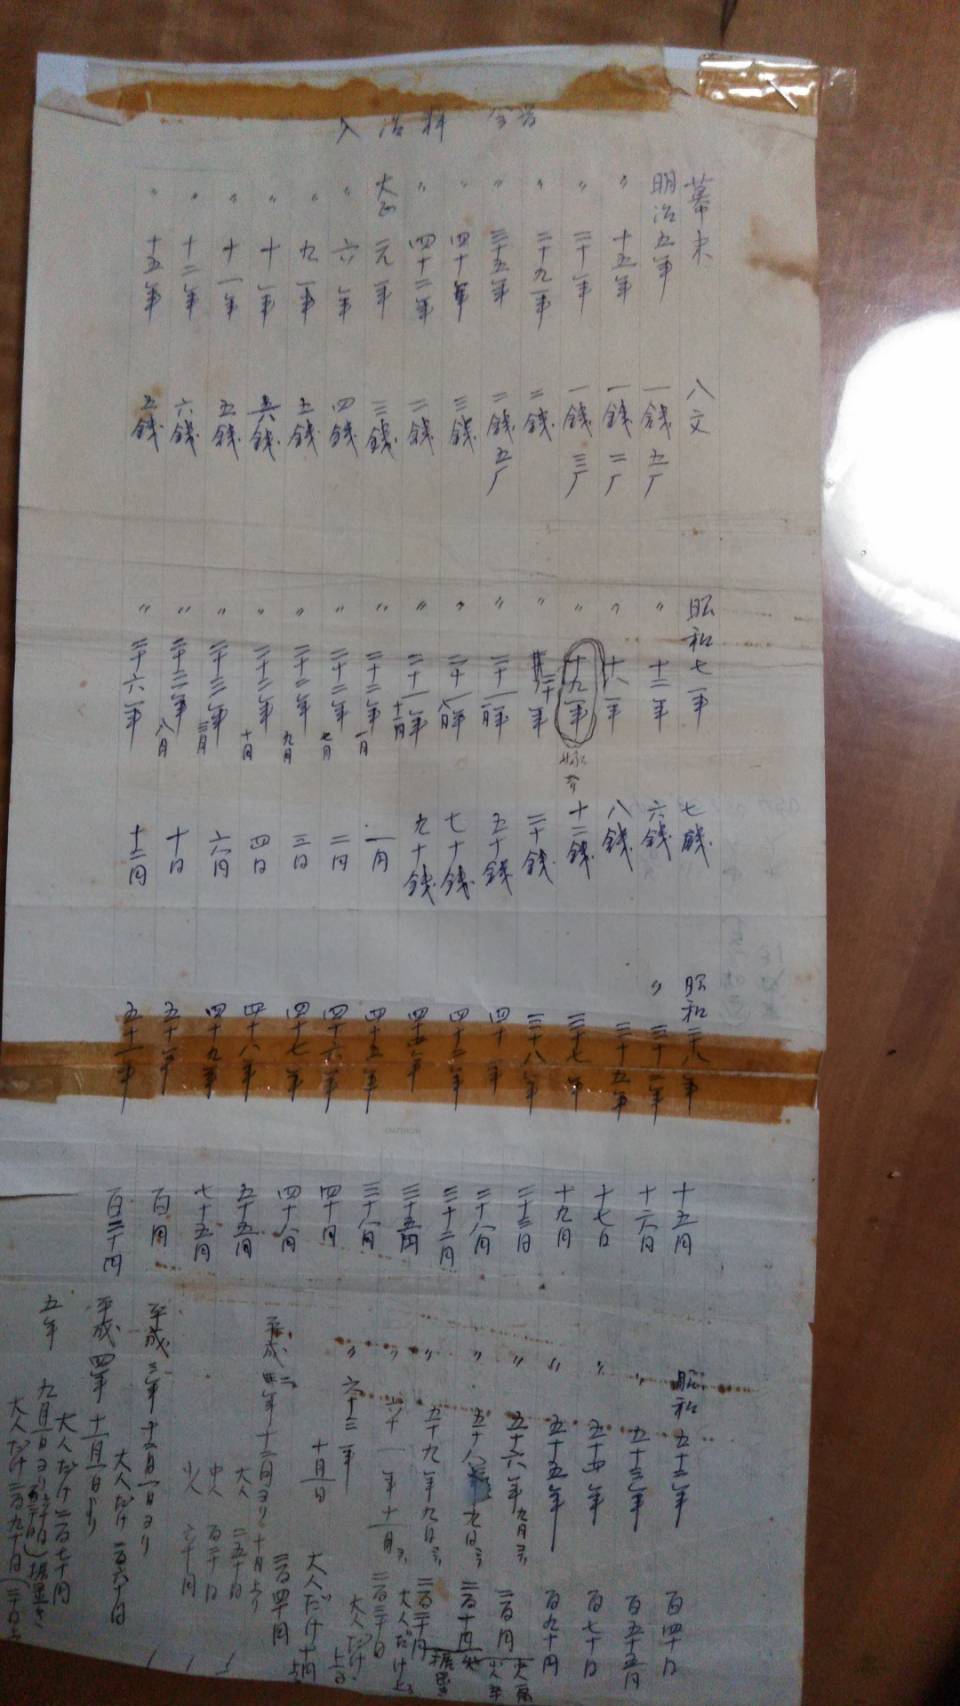 入浴料 金
幕末 八文
明治五年 一銭五厂
〃 十五年 一銭二厂
〃 二十年 一銭三厂
〃 二十九年 二銭
〃 三十五年 二銭五厂
〃 四十年 三銭
〃 四十二年 二銭
大正 元年 三銭
〃 六年 四銭
〃 九年 五銭
〃 十年 六銭
〃 十一年 五銭
〃 十二年 六銭
〃 十五年 五銭
昭和七年 七銭
〃 十二年 六銭
〃 十八年 八銭
〃 十九年 十二銭
〃 二十年 二十銭
〃 二十一年 五十銭
〃 二十一年 七十銭
〃 二十一年 九十銭
〃 二十二年一月 一円
〃 二十二年七月 二円
〃 二十二年九月 三円
〃 二十二年十月 四円
〃 二十三年 六円
〃 二十三年八月 十円
〃 二十六年 十二円
昭和二八年 十五円
〃 三十二年 十六円
三十五年 十七円
三十七年 十九円
三十八年 二十三円
四十年 二十八円
四十二年 三十二円
四十四年 三十五円
四十五年 三十八円
四十六年 四十円
四十七年 四十八円
四十八年 五十五円
四十九年 七十五円
五十年 百円
五十一年 百二十円
昭和五十二年 百四十円
〃 五十三年 百五十五円
〃 五十四年 百七十円
〃 五十五年 百九十円
〃 五十六年九月 二百円
〃 五十八年九月 二百十円 据置
〃 五十九年九月 二百二十円 大人だけ
〃 六十一年十一月 二百三十円 大人だけ
〃 六十三年 十月一日 大人だけ十円
平成二年十二月ヨリ 二百四十円
大人 二百五十円
中人 百二十円
小人 六十円
平成三年十二月一日ヨリ 大人だけ 二百六十円
平成四年十一月一日より 大人だけ二百七十円
五年 九月一日ヨリ 据置き
大人だけ二百九十円